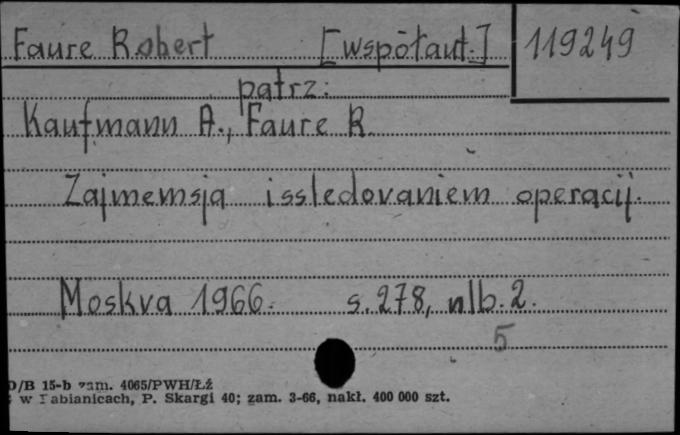 Faure Robert [współaut.] 119249
patrz:
Kaufmann A., Faure R.
Zajmemsja issledovaniem operacij.
Moskva 1966. s. 278, nlb. 2.
5
D/B 15-b zam. 4065/PWH/ŁŹ
w Pabianicach, P. Skargi 40; zam. 3-66, nakł. 400 000 szt.